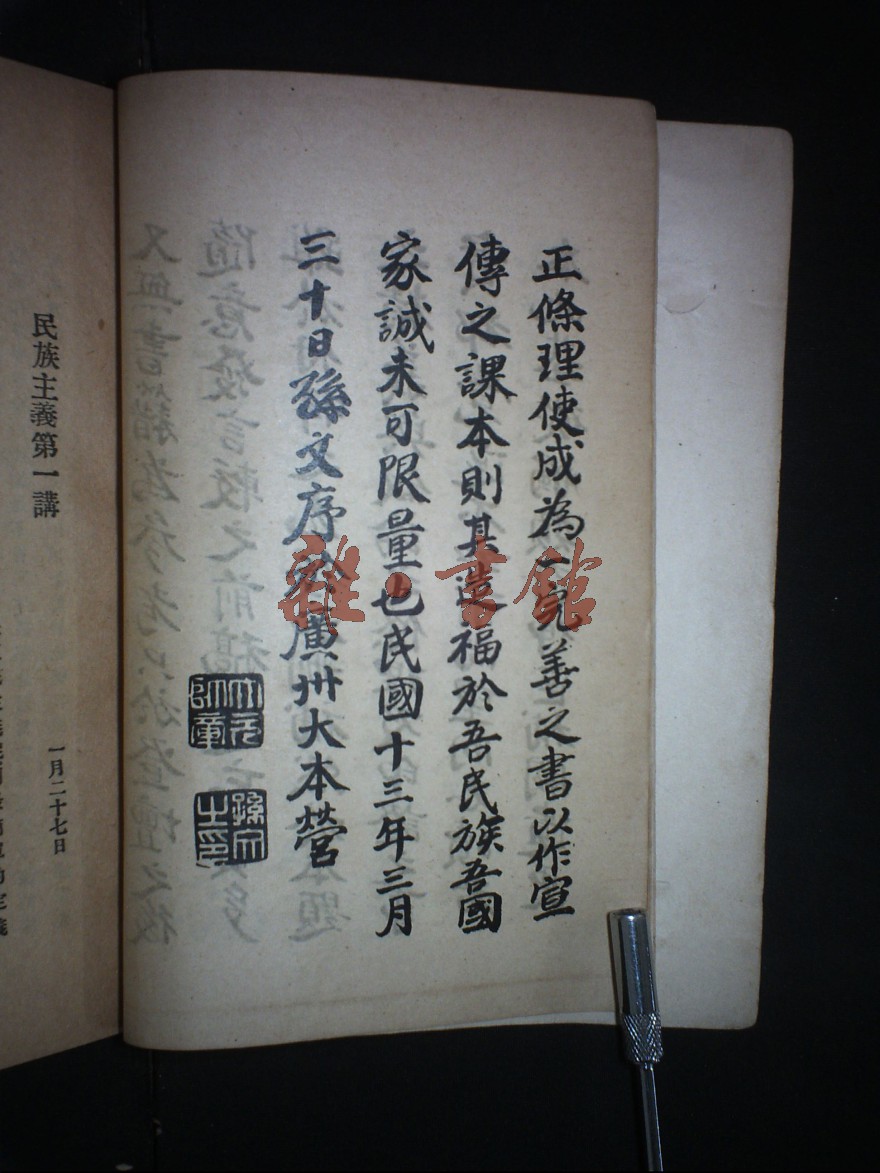 正條理使成為一完善之書以作宣
傳之課本則其造福於吾民族吾國
家誠未可限量也民國十三年三月
三十日孫文序於廣州大本營
大元帥章
孫文之印
民族主義第一講
一月二十七日
雜·書館